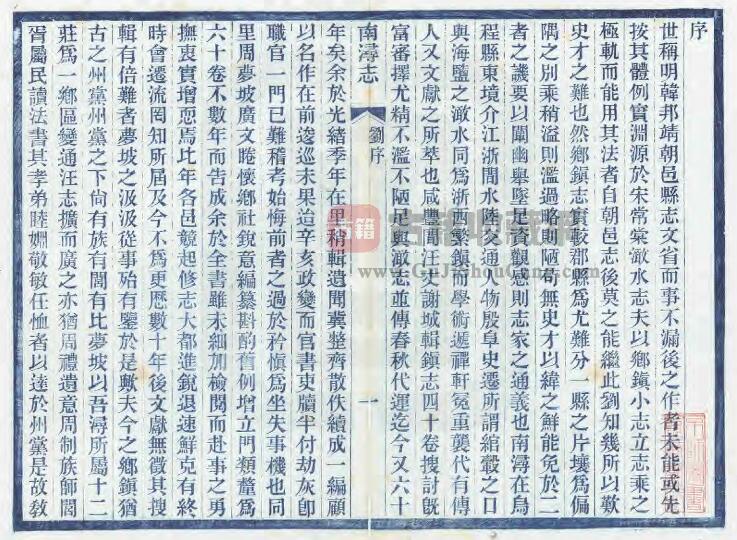 序
世稱明韓邦靖朝邑縣志文省而事不漏後之作者未能或先
按其體例實淵源於宋常棠澉水志夫以鄉鎮小志立志乘之
極軌而能用其法者自朝邑志後莫之能繼此劉知幾所以歎
史才之難也然鄉鎮志實較郡縣為尤難分一縣之片壤為偏
隅之別乘稍溢則濫過略則陋苟無史才以緯之鮮能免於二
者之譏要以闡幽舉墜足資觀感則志家之通義也南潯在烏
程縣東境介江浙間水陸交通人物殷阜史遷所謂綰轂之口
與海鹽之澉水同為浙西繁鎮而學術遞禪軒冕重襲代有傳
人又文獻之所萃也咸豐間汪丈謝城輯鎮志四十卷搜討既
富審擇尤精不濫不陋足與澉志並傳春秋代運迄今又六十
南潯志
劉序
一
年矣余於光緒季年在里稍輯遺聞冀整齊散佚續成一編顧
以名作在前逡巡未果迨辛亥政變而官書吏牘半付劫灰卽
職官一門已難稽考始悔前者之過於矜慎為坐失事機也同
里周夢坡廣文睠懷鄉社銳意編纂斟酌舊例增立門類釐為
六十卷不數年而告成余於全書雖未細加檢閱而赴事之勇
撫衷實增恧焉比年各邑競起修志大都進銳退速鮮克有終
時會遷流罔知所屆及今不為更歷數十年後文獻無徵其搜
輯有倍難者夢坡之汲汲從事殆有鑒於是歟夫今之鄉鎮猶
古之州黨州黨之下尚有族有閭有比夢坡以吾潯所屬十二
莊為一鄉區變通汪志擴而廣之亦猶周禮遺意周制族師閭
胥屬民讀法書其孝弟睦婣敬敏任恤者以達於州黨是故敎
古籍收藏网
www.GuJiShouCang.com